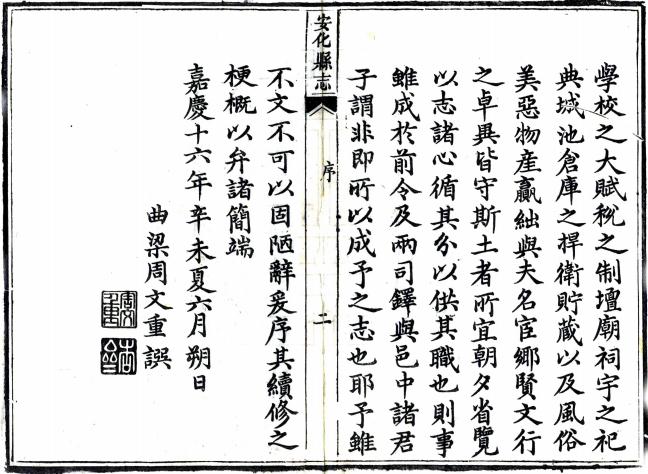 學校之大賦稅之制壇廟祠宇之祀
典城池倉庫之捍衛貯蔵以及風俗
美惡物産贏絀與夫名宦鄉賢文行
之卓異皆守斯土者所宜朝夕省覽
以志諸心循其分以供其職也則事
雖成於前令及兩司鐸與邑中諸君
子謂非即所以成予之志也耶予雖
安化縣志
序
二
不文不可以固陋辭爰序其續修之
梗概以弁諸簡端
嘉慶十六年辛未夏六月朔日
曲梁周文重譔